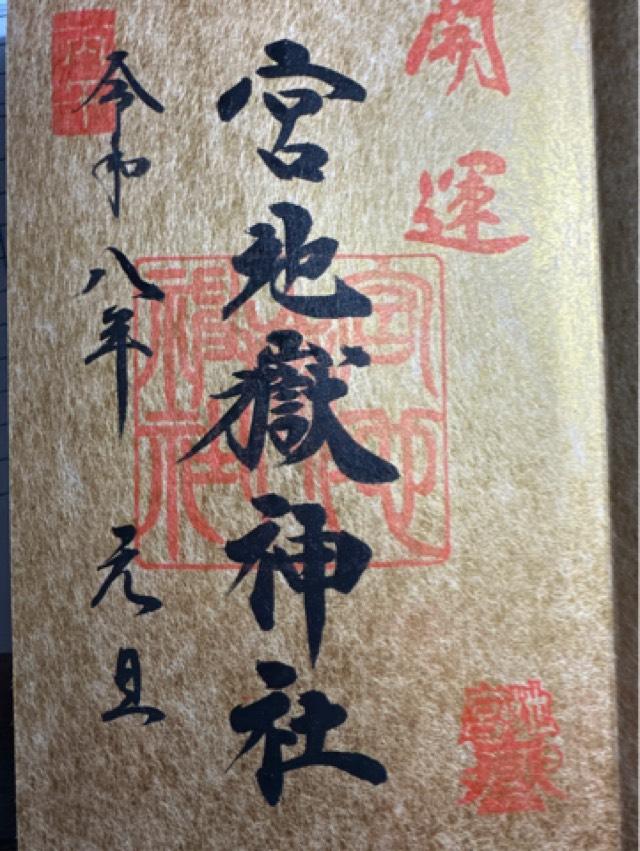 開運
宮地嶽神社
令和八年 元旦
宮地嶽